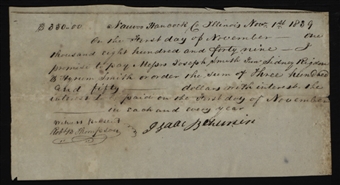 $ 350.00 Nauvoo Hancock Co. Illinois Nov. 1st 1839
On the first day of November — one
thousand eight hundred and forty nine — I
promise to pay Messrs Joseph Smith Junr Sidney Rigdon
& Hyrum Smith or order the sum of Three hundred
and fifty — dollars with interest the
interest to be paid on the first day of November
in each and every year
witness present
Robt B. Thompson
Isaac